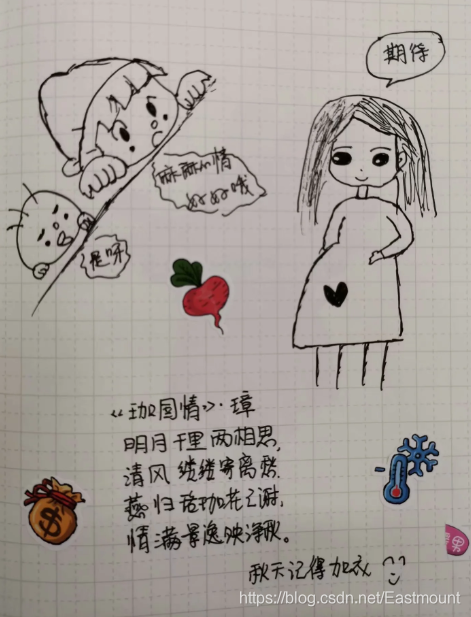 期待
麻麻心情
好好哦
是呀
《珈国情》·璋
明月千里两相思,
清风缕缕寄离愁。
燕归珞珈花已谢,
情满景逸映深秋。
秋天记得加衣
https://blog.csdn.net/Eastmount